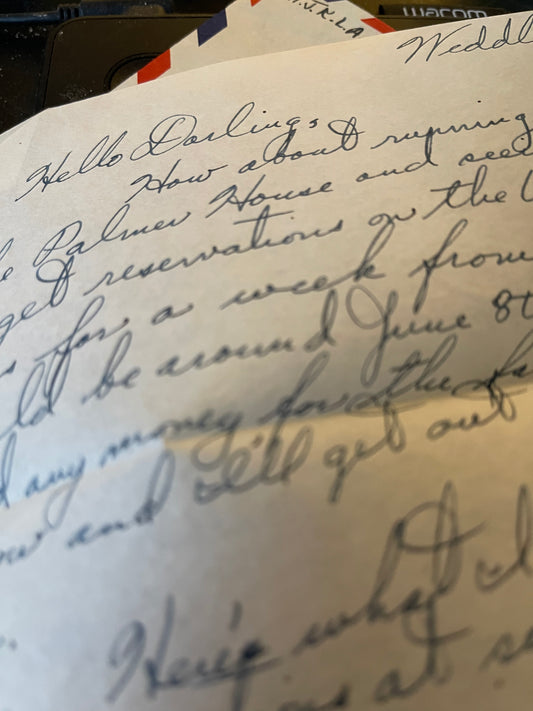 wacom
Weddl
Hello Darlings
How about running
Palmer House and see
get reservations on the
for a week from
ld be around June 8t
any money for the
and I'll get out
Here's what I
at